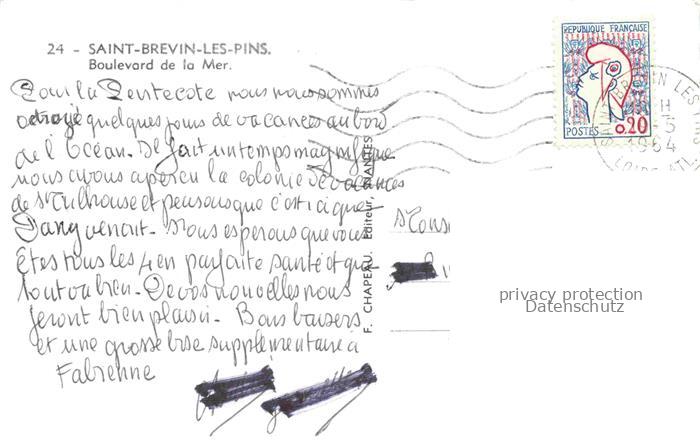 24 - SAINT-BREVIN-LES-PINS.
Boulevard de la Mer.
Pour la Pentecote nous nous sommes
octroyé quelques jours de vacances au bord
de l'Océan. Il fait un temps magnifique
nous avons aperçu la colonie de vacances
de St Mulhouse et pensons que c'est ici que
Dany venait. Nous esperons que vous
êtes tous les 4 en parfaite santé et que
tout va bien. De vos nouvelles nous
feront bien plaisir. Bons baisers
et une grosse bise supplémentaire à
Fabienne
F. CHAPEAU, Editeur, NANTES
REPUBLIQUE FRANÇAISE
POSTES 0,20
BREVIN LES
1964
LOIRE ATL
privacy protection
Datenschutz